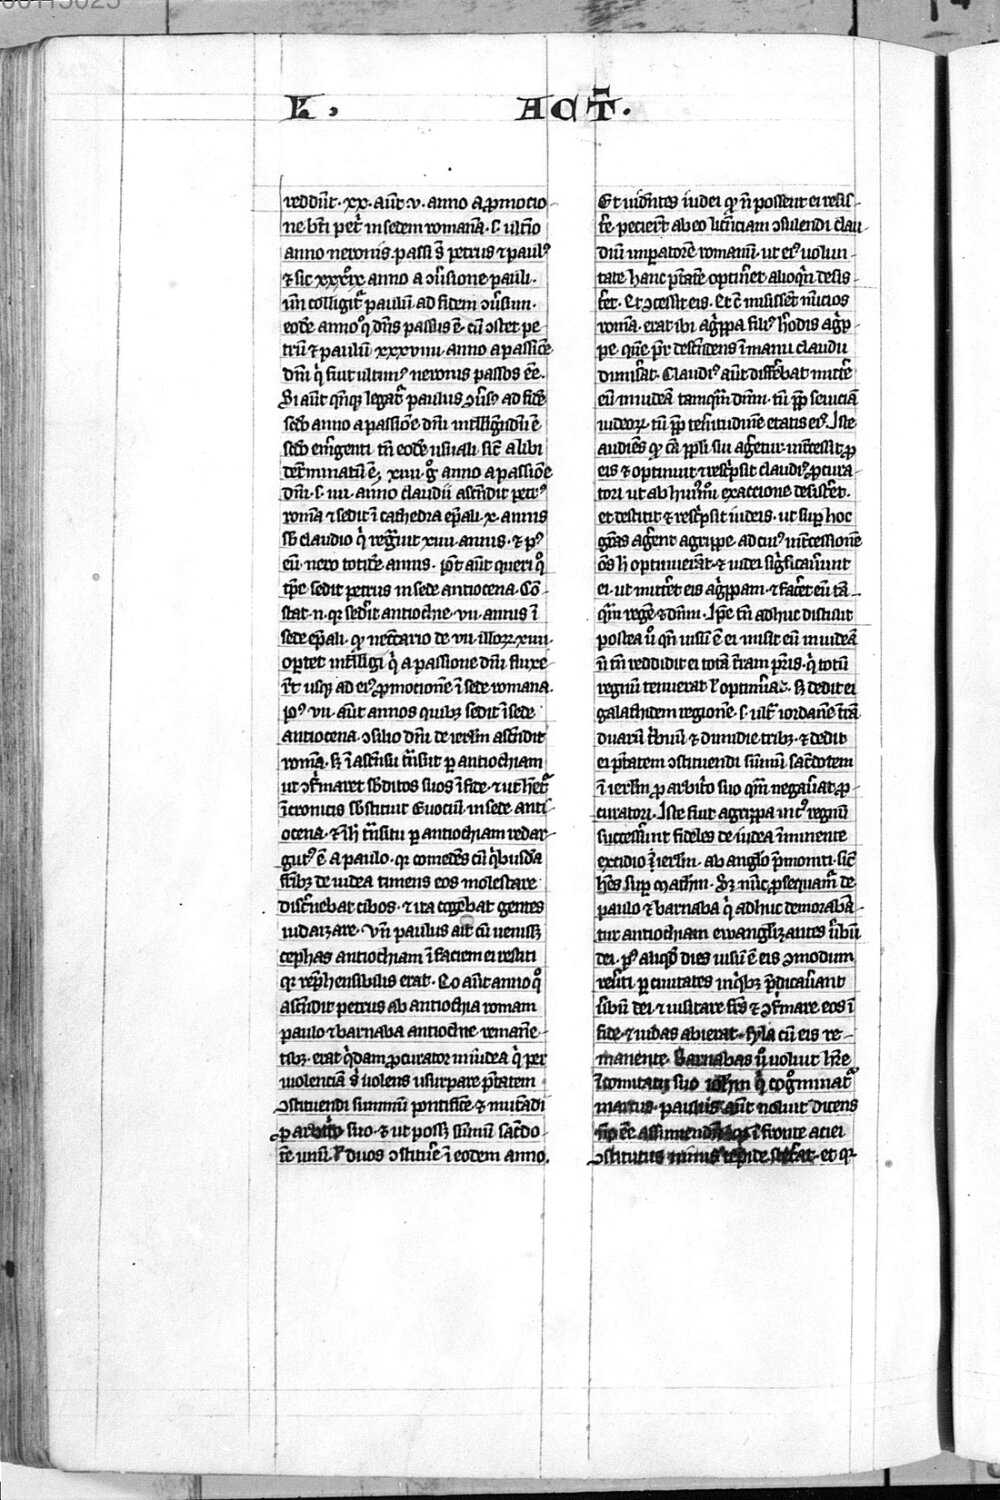 K. ACT̄.
reddūt. xx. aūt. v. anno a ꝓmotio-
ne bt̄i pet̄ in sedem romanā. s. ultīo
anno neronis. passi s̄t petrus ⁊ paulꝰ
⁊ sic xxxix anno a ↄuersione pauli.
eodē anno quo dn̄s passus ē. cū ↄstet pe
trū ⁊ paulū xxxviiii. anno a passiōe
dn̄i qͥ fuit ultimꝰ neronis passos eē.
Si aūt qͥnqꝫ legat̄ paulus ↄuersꝰ ad fidē
sedꝫ anno a passiōe dn̄i
det̄minatū ē, xiiii. gͦ anno a passiōe
dn̄i. s. iiii. anno claudii ascēdit petrꝰ
romā ⁊ sedit ī cathedra ep̄ali. x. annis
sƀ claudio qͥ regͣuit xiiii. annis. ⁊ pꝰ
eū nero totidē annis. pōt aūt queri qͦ
tp̄e sedit petrus in sede antiocena. Cō-
stat. n. qꝛ sedit antiochie. vii. annis ī
sede ep̄ali. qꝛ de vii. illoꝝ xiiii.
oportet intelligi qͥ a passione dn̄i fluxe-
rt̄ usqꝫ ad eiꝰ ꝓmotionē ī sede romana.
pꝰ vii. aūt annos quibꝫ sedit ī sede
antiocena. ↄsilio dn̄i de ierlm ascēdit
romā. sꝫ ī ascēsu trāsiit ꝑ antiochiam
ut ↄfirmaret sƀditos suos ī fide. ⁊ ut
sƀstituit Euodiū in sede anti-
ocena. ⁊ ī trāsitu ꝑ antiochiam redar-
gutꝰ ē a paulo. qꝛ comedēs cū qͥbusdā
frībꝫ de iudea timens eos molestare
discernebat cibos. ⁊ ita cogebat gentes
iudaizare. Vn̄ paulus ait cū venissꝫ
cephas antiochiam ī faciem ei restiti
qꝛ rephensibilis erat. Eo aūt anno qͦ
ascēdit petrus ab antiochia romam
paulo ⁊ barnaba antiochie remanē-
tibꝫ. erat qͥdam ꝓcurator in iudea qͥ per
violenciā s̄ volens usurpare ptātem
ↄstituendi summū pontificē. ⁊ mutādi
ꝓ arbitrio suo. ⁊ ut possꝫ summū sacdo-
tē unū ł duos ↄstituere ī eodem anno.
Et uidētes iudei qꝛ n̄ possent ei resis-
te. pecierūt ab eo licēciam ↄsulendi clau-
diū imꝑatorē romanū. ut eiꝰ volun-
tate hanc ptātē optineret alioqͥn desis-
ret. Et ↄcessit eis. Et cū misissēt nūcios
romā. erat ibi agͥppa filiꝰ hodis agͥp-
pe. quē pr̄ descēdens ī manu claudii
dimisat. Claudiꝰ aūt differebat mittere
eū in iudeā tamqͣm dn̄m. tū ꝓp̄ seviciā
iudeoꝝ. tū ꝓp̄ etatis eiꝰ. Iste
audiēs qꝛ cā ppl̄i sui agēetur. intercessit ꝓ
eis ⁊ optinuit ⁊ rescͥpsit claudiꝰ ꝓcura-
tori ut ab huiꝰmōi exaccione desisteret.
et destitit ⁊ rescͥpsit iudeis. ut suꝑ hoc
grās agerent agrippe ad cuiꝰ intercessionē
hͦ optinuerāt. ⁊ iudei significauerunt
ei. ut mitteret eis agͥppam. ⁊ faceret eū tā-
qͣm regē ⁊ dn̄m. Ipse tn̄ adhuc distulit
postea ū qn̄ uisū ē ei misit eū in iudeā
n̄ tn̄ reddidit ei totā terram pris. qͥ totū
regnū tenuerat ł optinuerat. sꝫ dedit ei
galathidem regionē. s. ult̄ iordanē trā
duarū tribuū ⁊ dimidie tribꝫ. ⁊ dedit
ei ptātem ↄstituendi summū sacdotem
ī ierlm ꝓ arbitrio suo qm̄ negauerat ꝓ-
curatori. Iste fuit agrippa regnū
successerunt fideles de iudea īminente
excidio ī ierlm. ab anglo pmoniti. sic̄
hēs suꝑ Mathm. Sꝫ nūc ꝓsequamur de
paulo ⁊ barnaba qͥ adhuc demorabā-
tur antiochiam ewangelizantes ūbū
dei. pꝰ aliqͦd dies visū ē eis ↄmodum
reūti ꝑ ciuitates in qͥbꝫ p̄dicauerant
ūbū dei. ⁊ uisitare frēs ⁊ ↄfirmare eos ī
fide. ⁊ iudas abierat. syla cū eis re-
manente. Barnabas ū voluit hr̄e
ī comitatu suo iohm qͥ cogͦminatͬ
marcus. paulus aūt noluit dicens
nō eē assumendū qꝛ ī fronte aciei
ↄstitutus nimis tepide steterat. et qꝛ